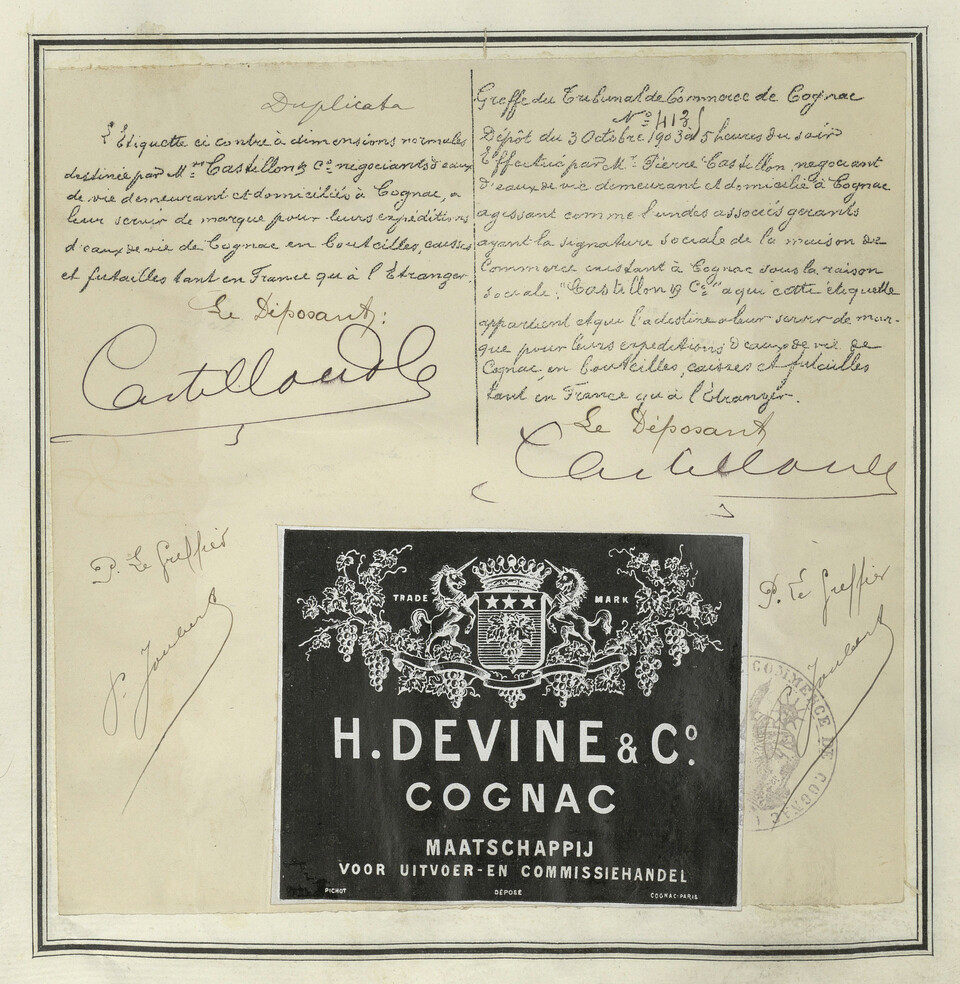 Duplicata
L'Etiquette ci contre à dimensions normales
destinée par Mrs Castillon & Co négociants d'eaux
de vie demeurant et domiciliés à Cognac, a
leur servir de marque pour leurs expéditions
d'eaux de vie de Cognac en bouteilles, caisses
et futailles tant en France qu'à l'Etranger.
Le Déposant:
Castillon & Co
P. Le Greffier
P. Joubert
Greffe du Tribunal de Commerce de Cognac
No
Dépôt du 3 Octobre 1903 à 5 heures du soir
Effectué par Mr Pierre Castillon, négociant
d'eaux de vie demeurant et domicilié à Cognac
agissant comme l'un des associés gérants
ayant la signature sociale de la maison de
Commerce existant à Cognac sous la raison
sociale: "Castillon & Co" a qui cette étiquette
appartient et qui l'a destine a leur servir de mar-
que pour leurs expéditions d'eaux de vie de
Cognac, en bouteilles, caisses et futailles
tant en France qu'à l'Etranger.
Le Déposant
Castillon
P. Le Greffier
Joubert
COMMERCE DE COGNAC
TRADE MARK
H. DEVINE & Co.
COGNAC
MAATSCHAPPIJ
VOOR UITVOER-EN COMMISSIEHANDEL
PICHOT DÉPOSÉ COGNAC-PARIS